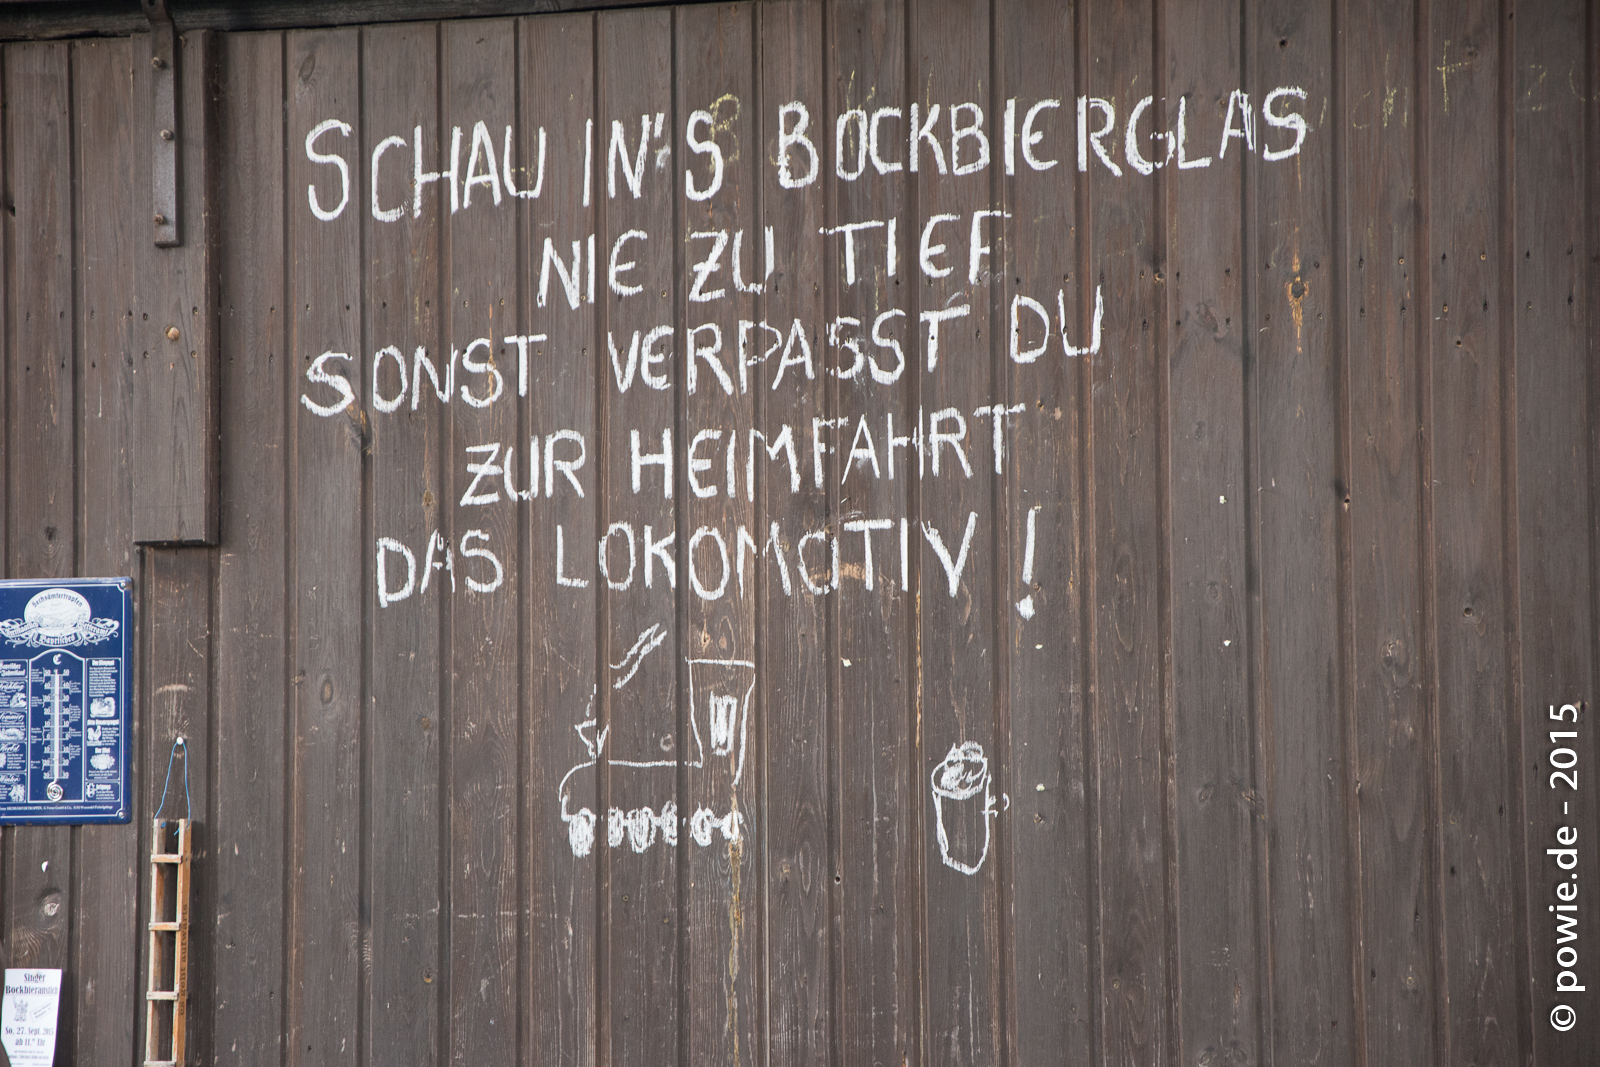 SCHAU IN'S BOCKBIERGLAS
NIE ZU TIEF
SONST VERPASST DU
ZUR HEIMFAHRT
DAS LOKOMOTIV!
Bayrisches
C
Singer
Bockbieranstich
So. 27. Sept. 2015
ab 11.° Uhr
© powie.de - 2015